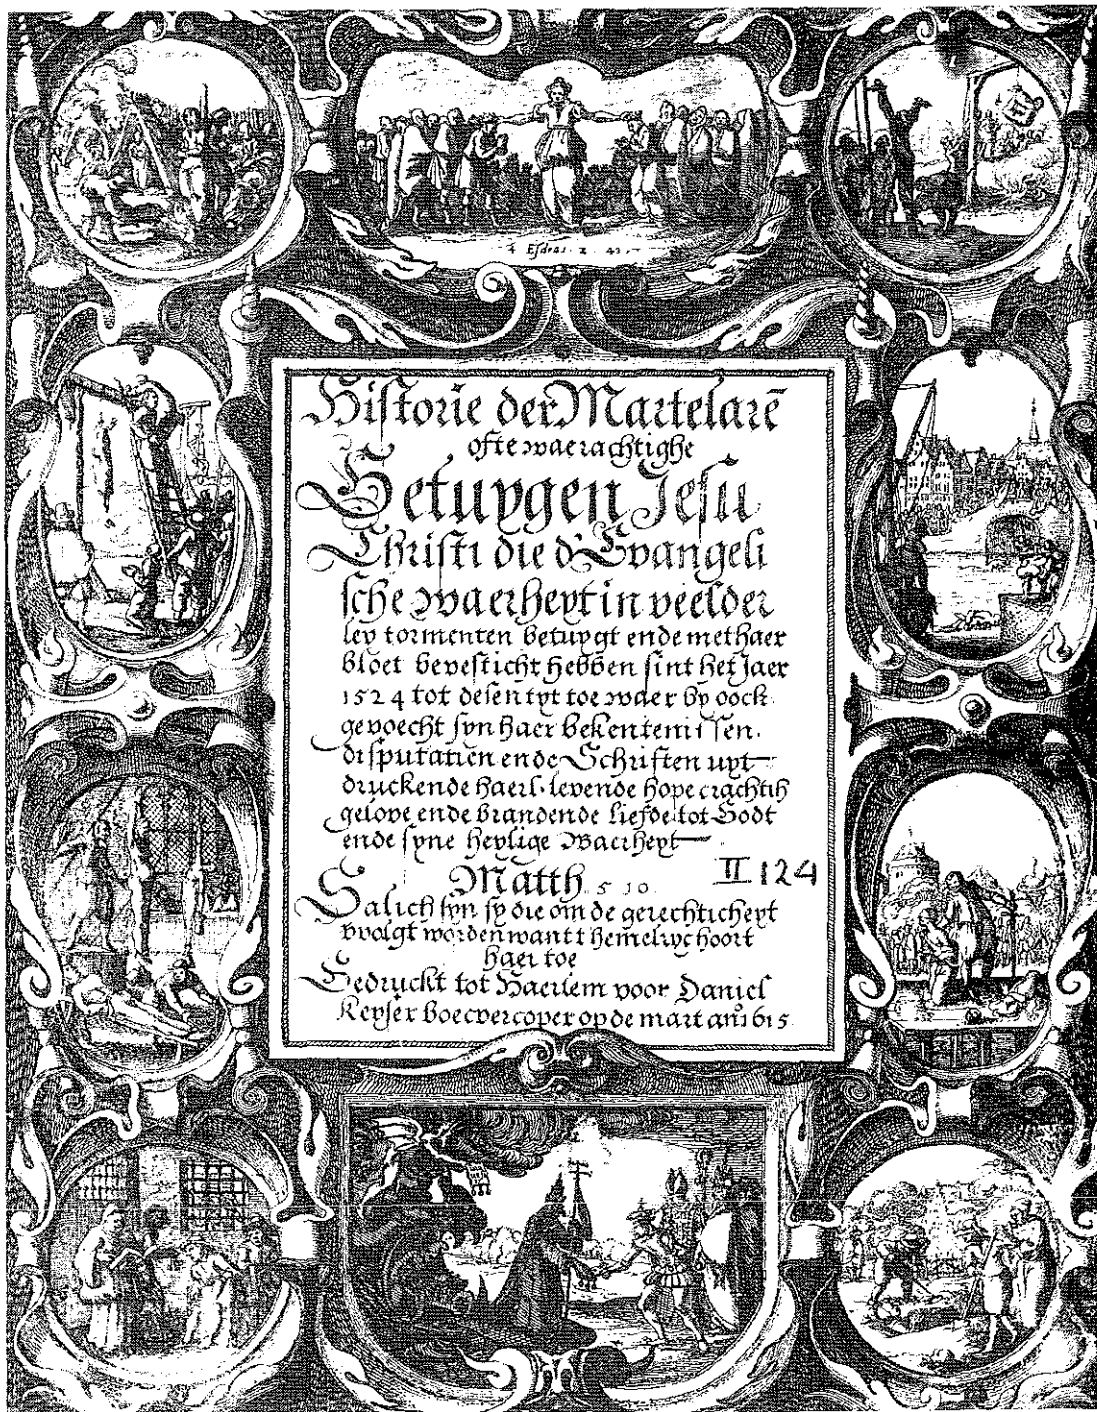 4 Esdras. 2. 43.
Historie der Martelarē
ofte waerachtighe
Getuygen Jesu
Christi die d'Evangeli
sche waerheyt in veelder
ley tormenten betuygt ende met haer
bloet bevesticht hebben sint het Jaer
1524 tot desen tyt toe waer by oock
gevoecht syn haer bekentenissen.
disputatien ende Schriften uyt
druckende haerl. levende hope crachtih
gelove ende brandende liefde tot Godt
ende syne heylige Waerheyt
Matth 5 10.
II 124
Salich syn sy die om de gerechticheyt
vvolgt worden want t hemelryc hoort
haer toe
Gedruckt tot Haerlem voor Daniel
Keyser boecvercoper op de mart an° 1615.